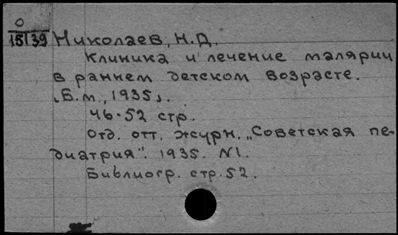 О
15139 Николаев, Н.Д.
Клиника и лечение малярии
в раннем детском возрасте.
[Б.м., 1935].
46-52 стр.
Отд. отт. журн. „Советская пе-
диатрия". 1935. №1.
Библиогр. стр. 52.